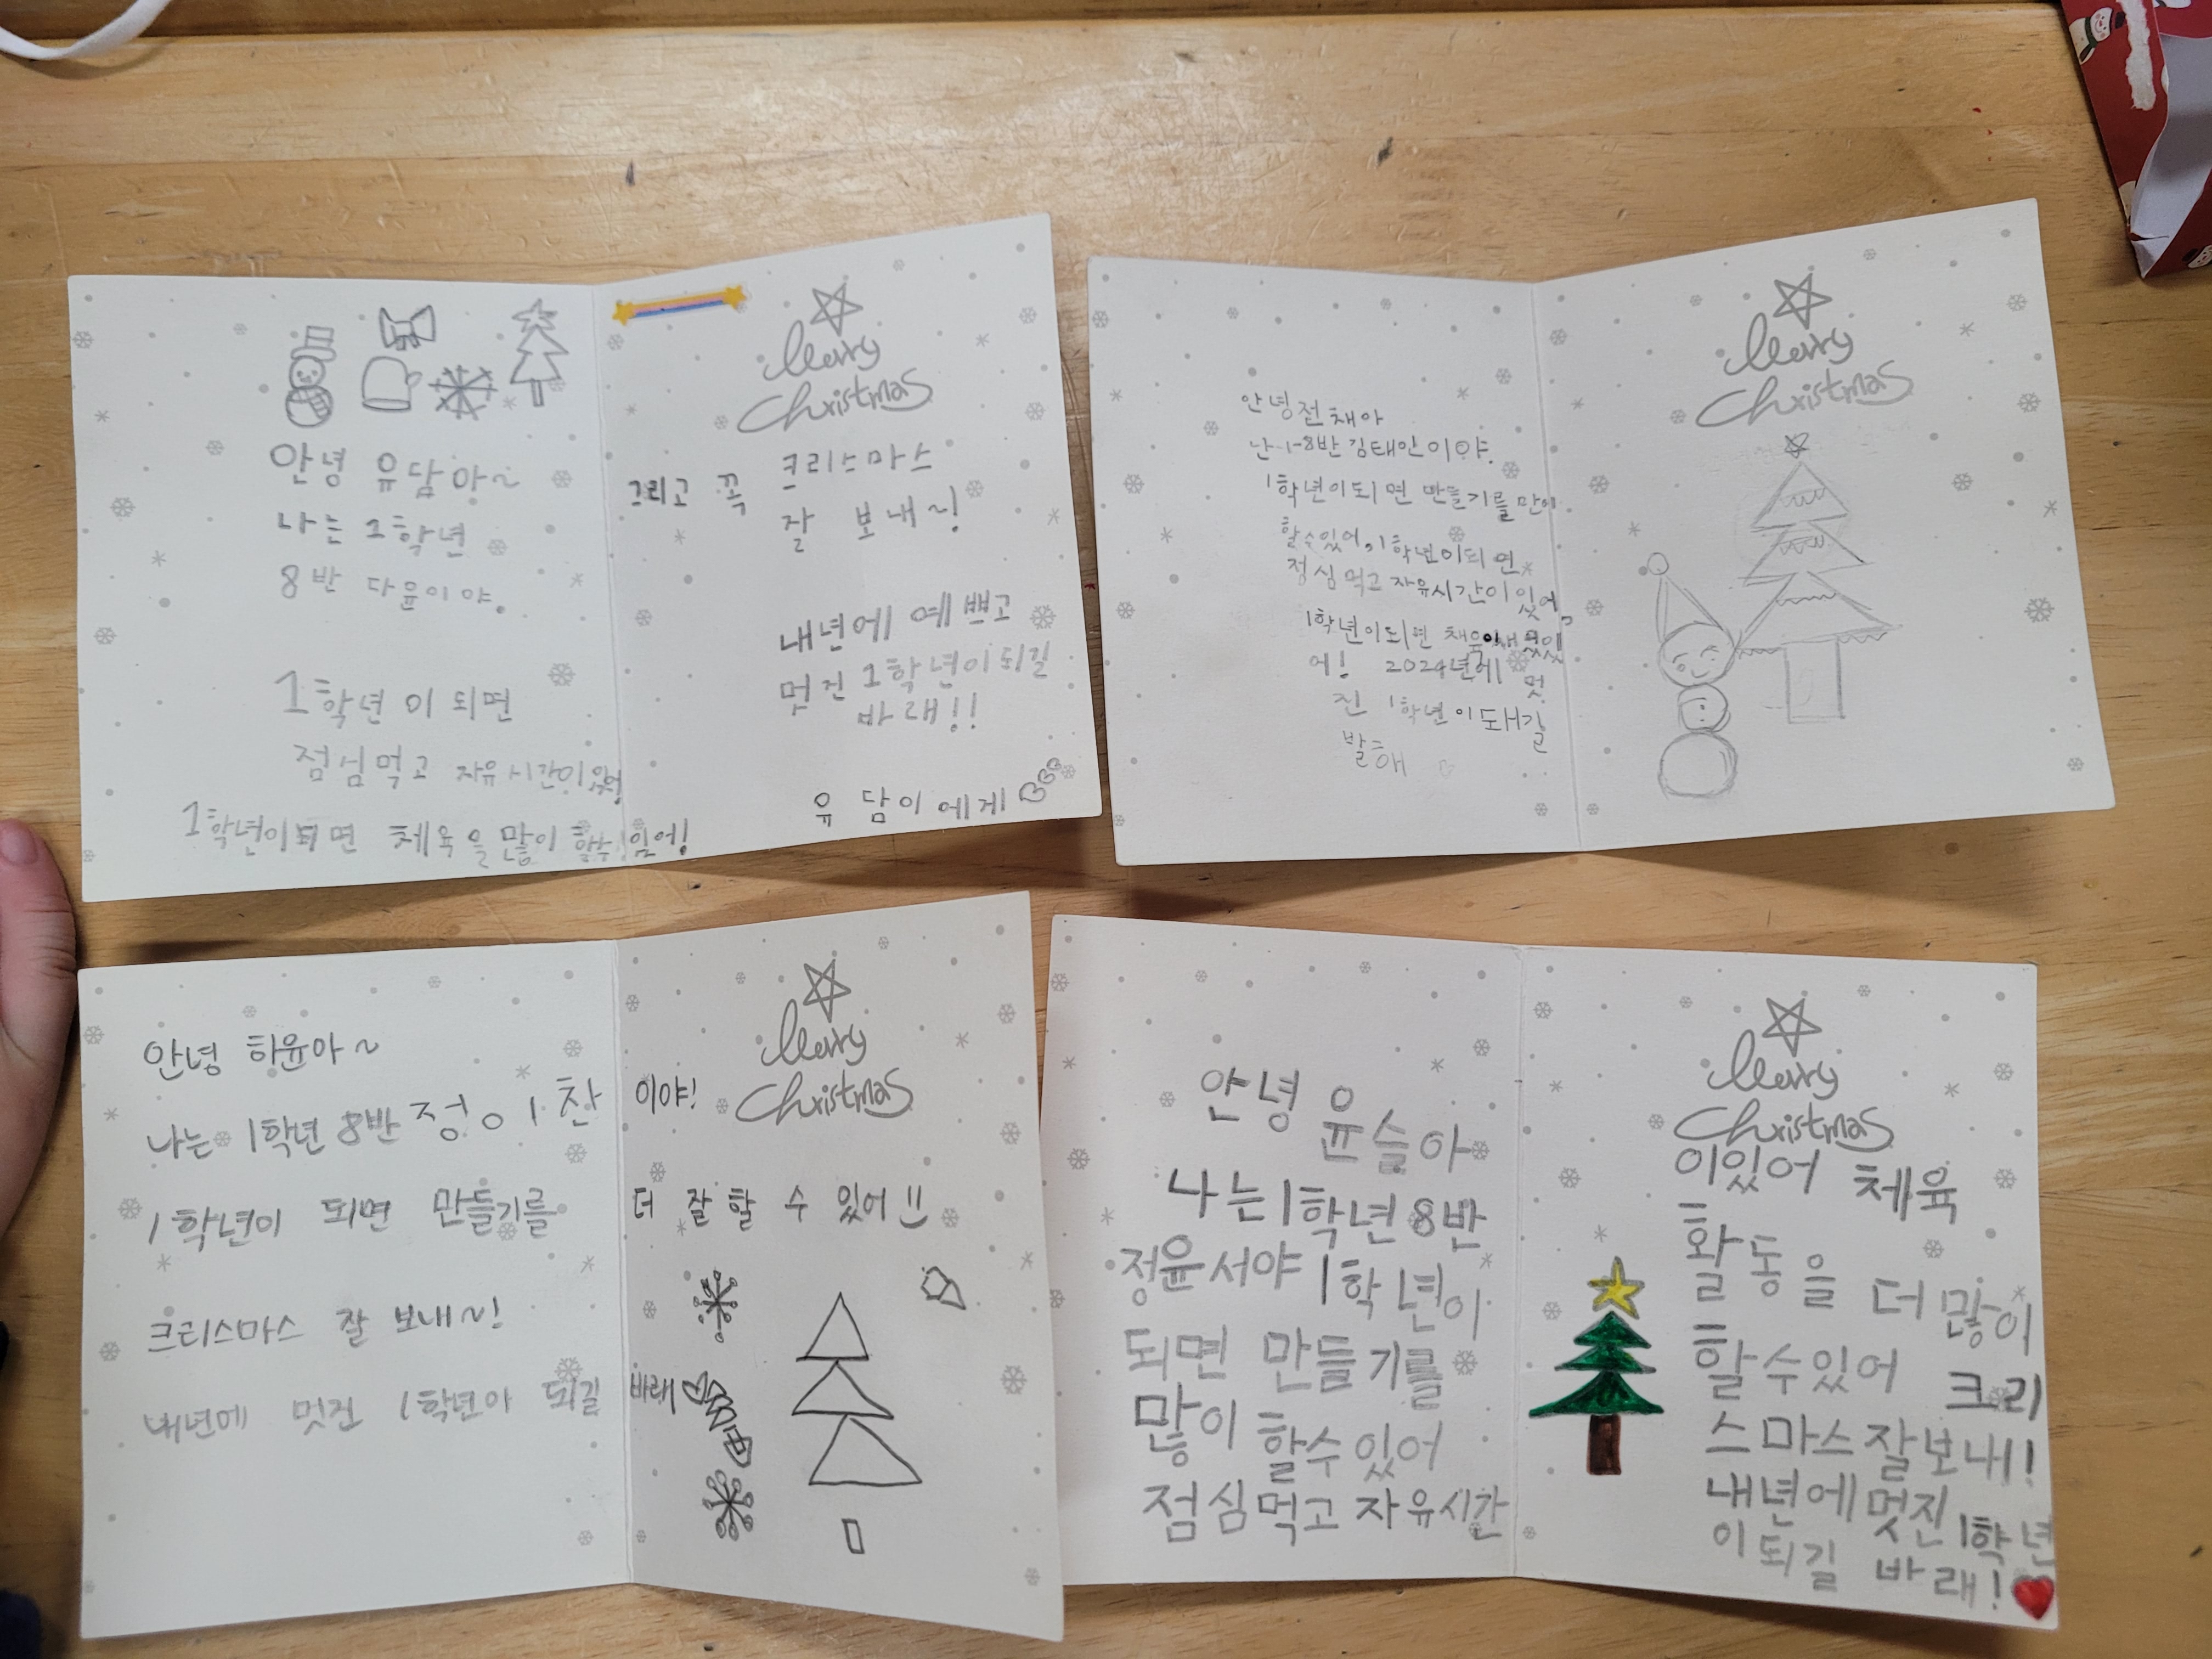 안녕 유담아~
나는 1학년
8반 다윤이야.
1학년이 되면
점심먹고 자유시간이 있어!
1학년이되면 체육을 많이 할수 있어!
Merry
Christmas
그리고 꼭 크리스마스
잘 보내~!
내년에 예쁘고
멋진 1학년이되길
바래!!
유담이에게
안녕전채아
난1-8반김태인이야.
1학년이되면 만들기를
할수있어, 1학년이되면
정심먹고 자유시간이있어,
1학년이되면
어! 2024년에 멋
진 1학년이돼길
발해
Merry
Christmas
안녕 하윤아~
나는 1학년 8반 정이찬
1학년이 되면 만들기를
크리스마스 잘 보내~!
내년에 멋진 1학년아 되길
Merry
Christmas
이야!
더 잘 할 수 있어!!
바래
안녕 윤슬아
나는1학년8반
정윤서야 1학년이
되면 만들기를
많이 할수있어
점심먹고 자유시간
Merry
Christmas
이있어 체육
활동을 더 많이
할수있어 크리
스마스잘보내!
내년에멋진1학년
이되길 바래!